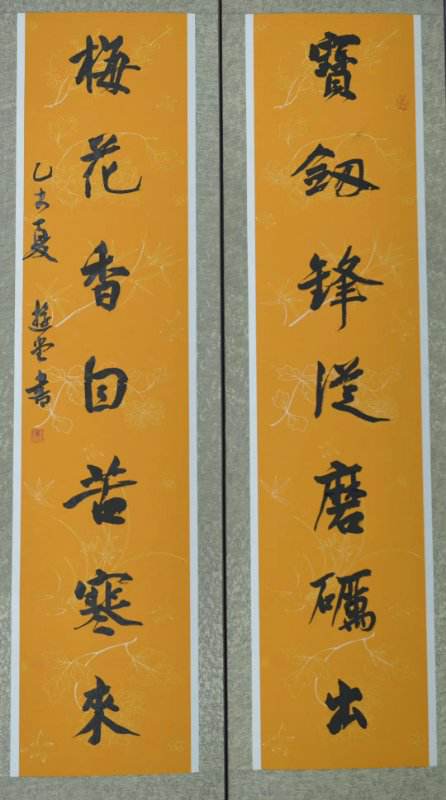 寶劔鋒從磨礪出
梅花香自苦寒來
乙未夏 遊堂書